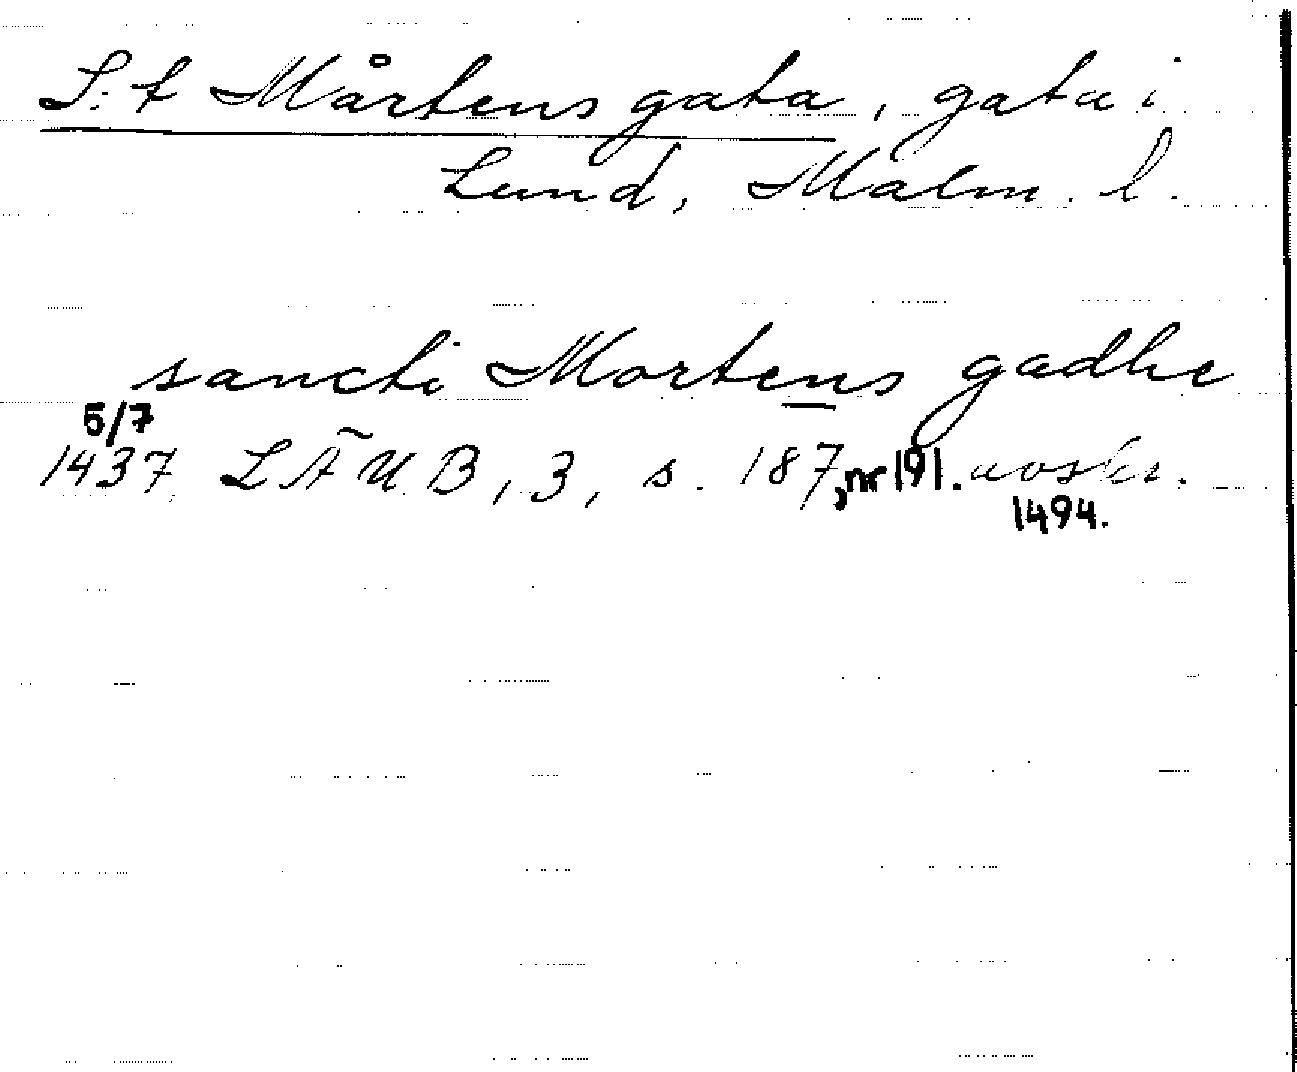 S:t Mårtens gata, gata i
Lund, Malm. l.
sancti Mortens gadhe
5/7
1437 LÄUB, 3, s. 187, nr 191. avskr.
1494.